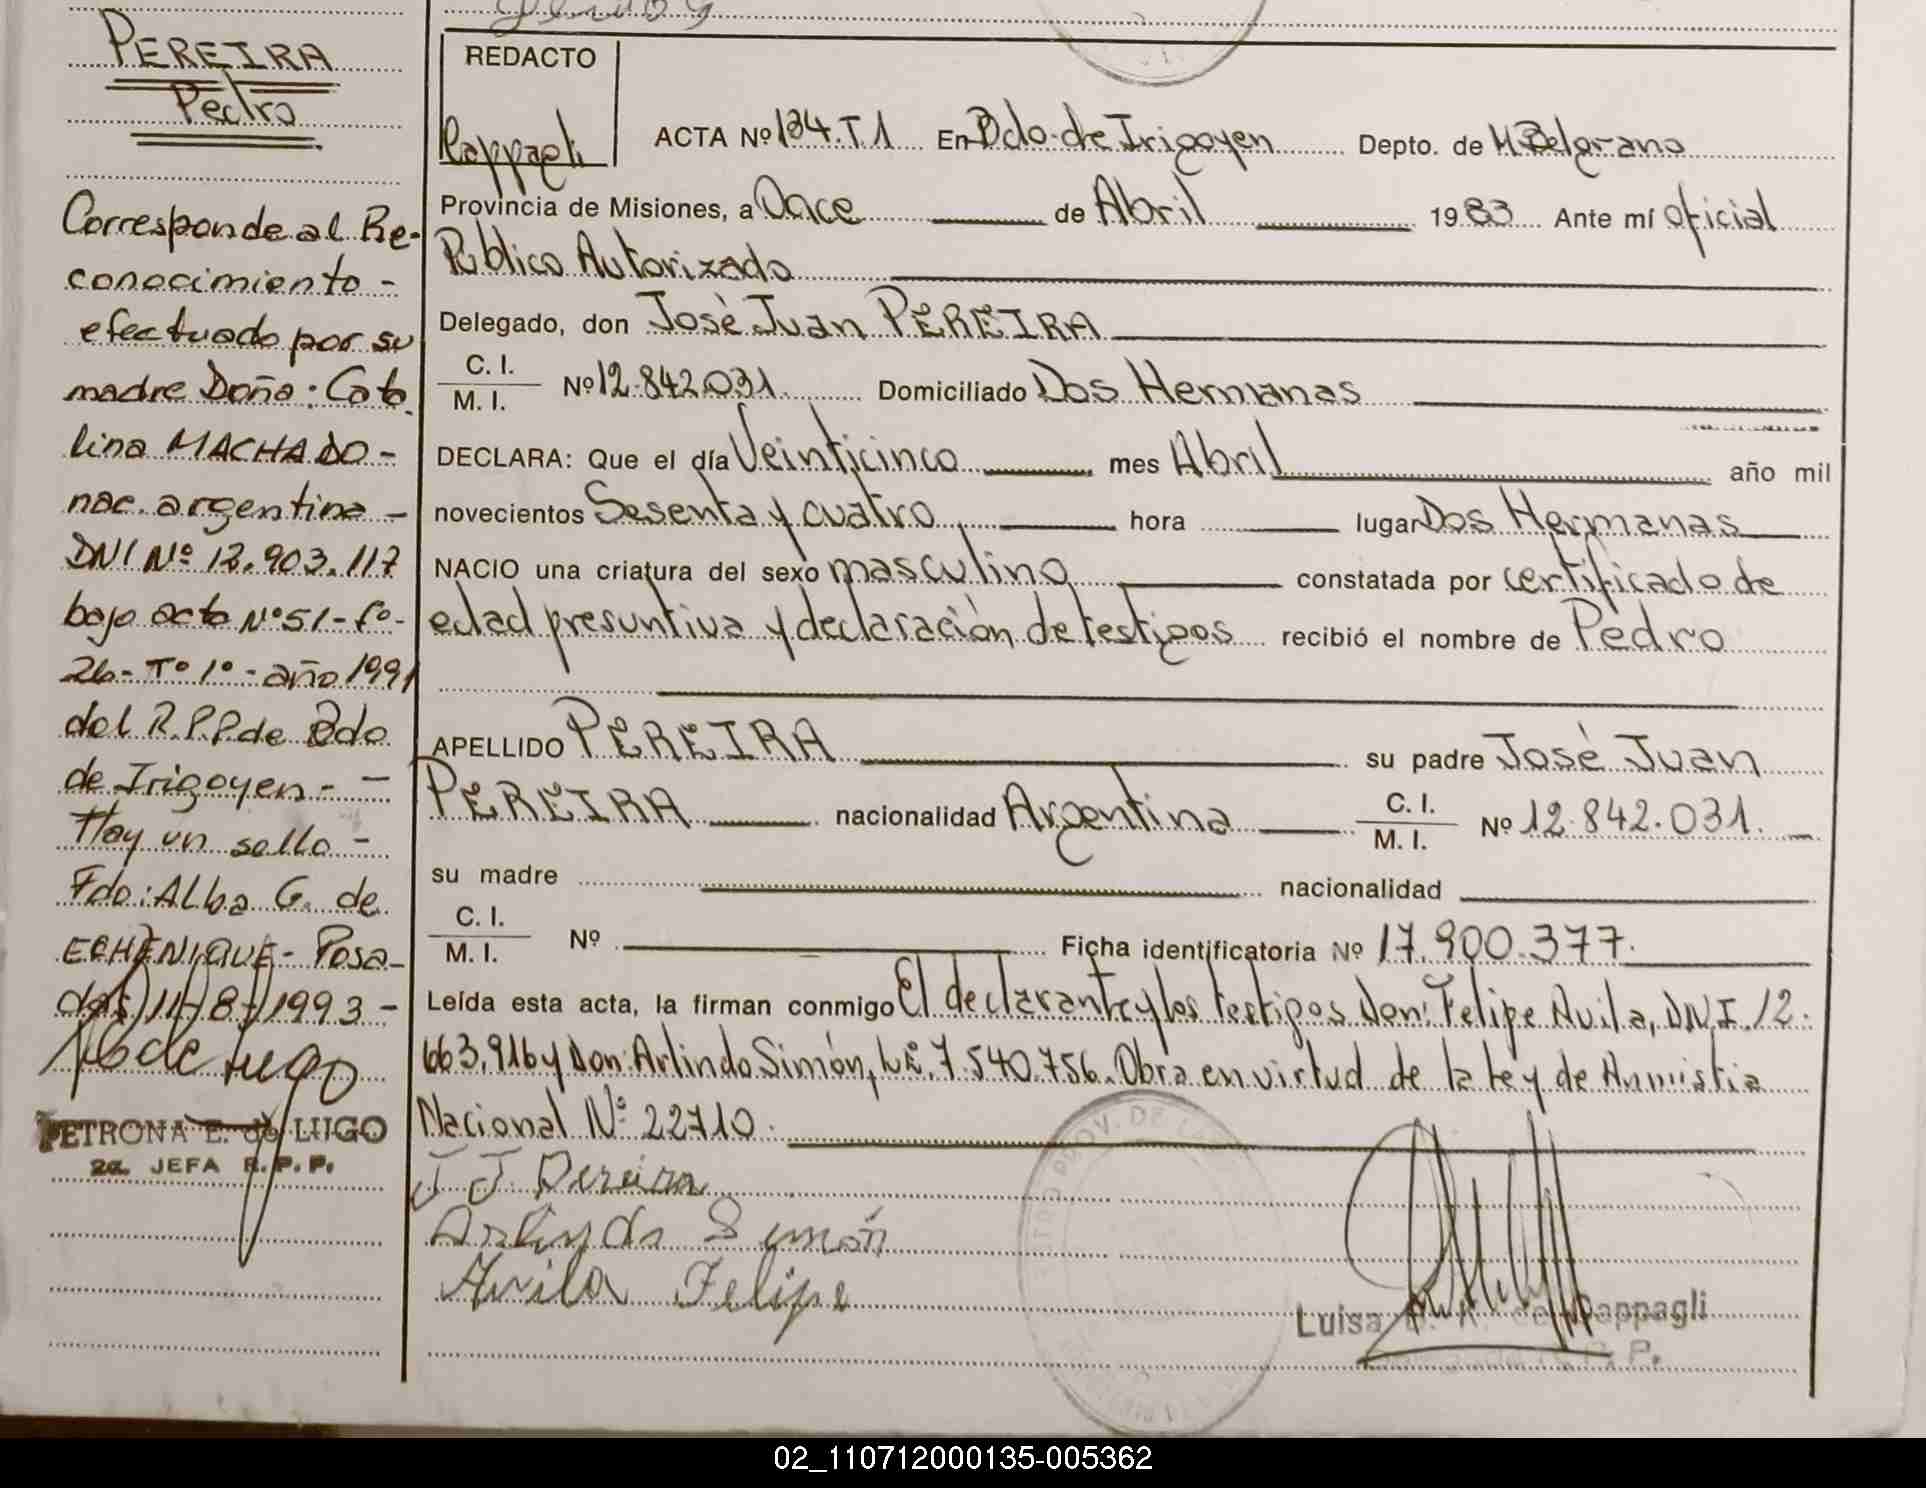 PEREIRA
Pedro
Corresponde al Re-
conocimiento -
efectuado por su
madre Doña: Cata
lina MACHADO -
nac. argentina -
DNI Nº 12.903.117
bajo acta Nº 51 - fº -
26 - Tº 1º - año 1991
del R.P.P. de Bdo
de Irigoyen - -
Hay un sello -
Fdo: Alba G. de
ECHENIQUE - Posa-
das, 11-8-1993 -
PETRONA E. de LUGO
2a. JEFA R.P.P.
REDACTO
Rappagli
ACTA Nº 134.T.1 En Bdo. de Irigoyen Depto. de M. Belgrano
Provincia de Misiones, a Once de Abril 1983 Ante mí oficial
Público Autorizado
Delegado, don José Juan PEREIRA
C. I.
M. I. Nº 12.842.031. Domiciliado Dos Hermanas
DECLARA: Que el día Veinticinco mes Abril año mil
novecientos Sesenta y cuatro hora lugar Dos Hermanas
NACIO una criatura del sexo masculino constatada por certificado de
edad presuntiva y declaración de testigos recibió el nombre de Pedro
APELLIDO PEREIRA su padre José Juan
PEREIRA nacionalidad Argentina C. I.
M. I. Nº 12.842.031.
su madre nacionalidad
C. I.
M. I. Nº Ficha identificatoria Nº 17.900.377.
Leída esta acta, la firman conmigo El declarante y los testigos Don: Felipe Avila, DN.I. 12.
663.916 y Don: Arlindo Simón, L.E. 7.540.756. Obra en virtud de la Ley de Anmistia
Nacional Nº 22710.
J J. Pereira
Arlindo Simón
Avila Felipe
Luisa Rappagli
R. P. P.
02_110712000135-005362